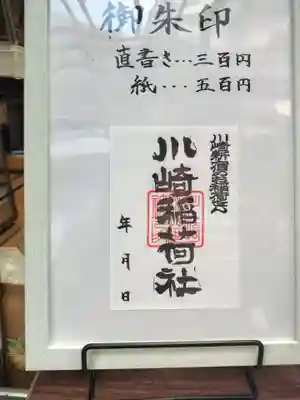 御朱印
直書き…三百円
紙...五百円
川崎稲荷社
年 月 日